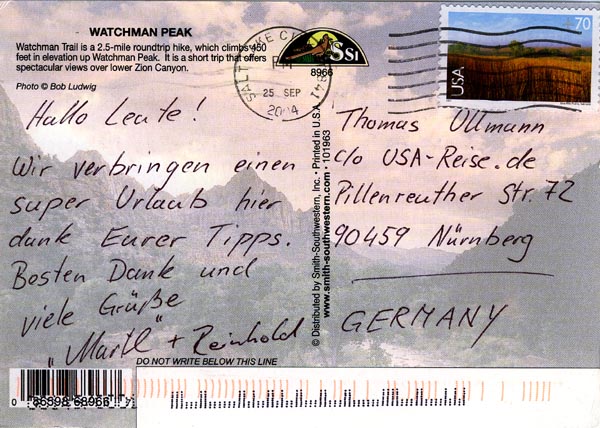 WATCHMAN PEAK
Watchman Trail is a 2.5-mile roundtrip hike, which climbs 450
feet in elevation up Watchman Peak. It is a short trip that offers
spectacular views over lower Zion Canyon.
Photo © Bob Ludwig
SSI
8966
SALT LAKE CI
841
PM
25 SEP
2004
70
USA
Hallo Leute!
Wir verbringen einen
super Urlaub hier
dank Eurer Tipps.
Besten Dank und
viele Grüße
"Martl" + Reinhold
© Distributed by Smith-Southwestern, Inc. • Printed in U.S.A.
www.smith-southwestern.com • 101963
Thomas Ullmann
c/o USA-Reise.de
Pillenreuther Str. 72
90459 Nürnberg
GERMANY
DO NOT WRITE BELOW THIS LINE
0 86398 68966 7